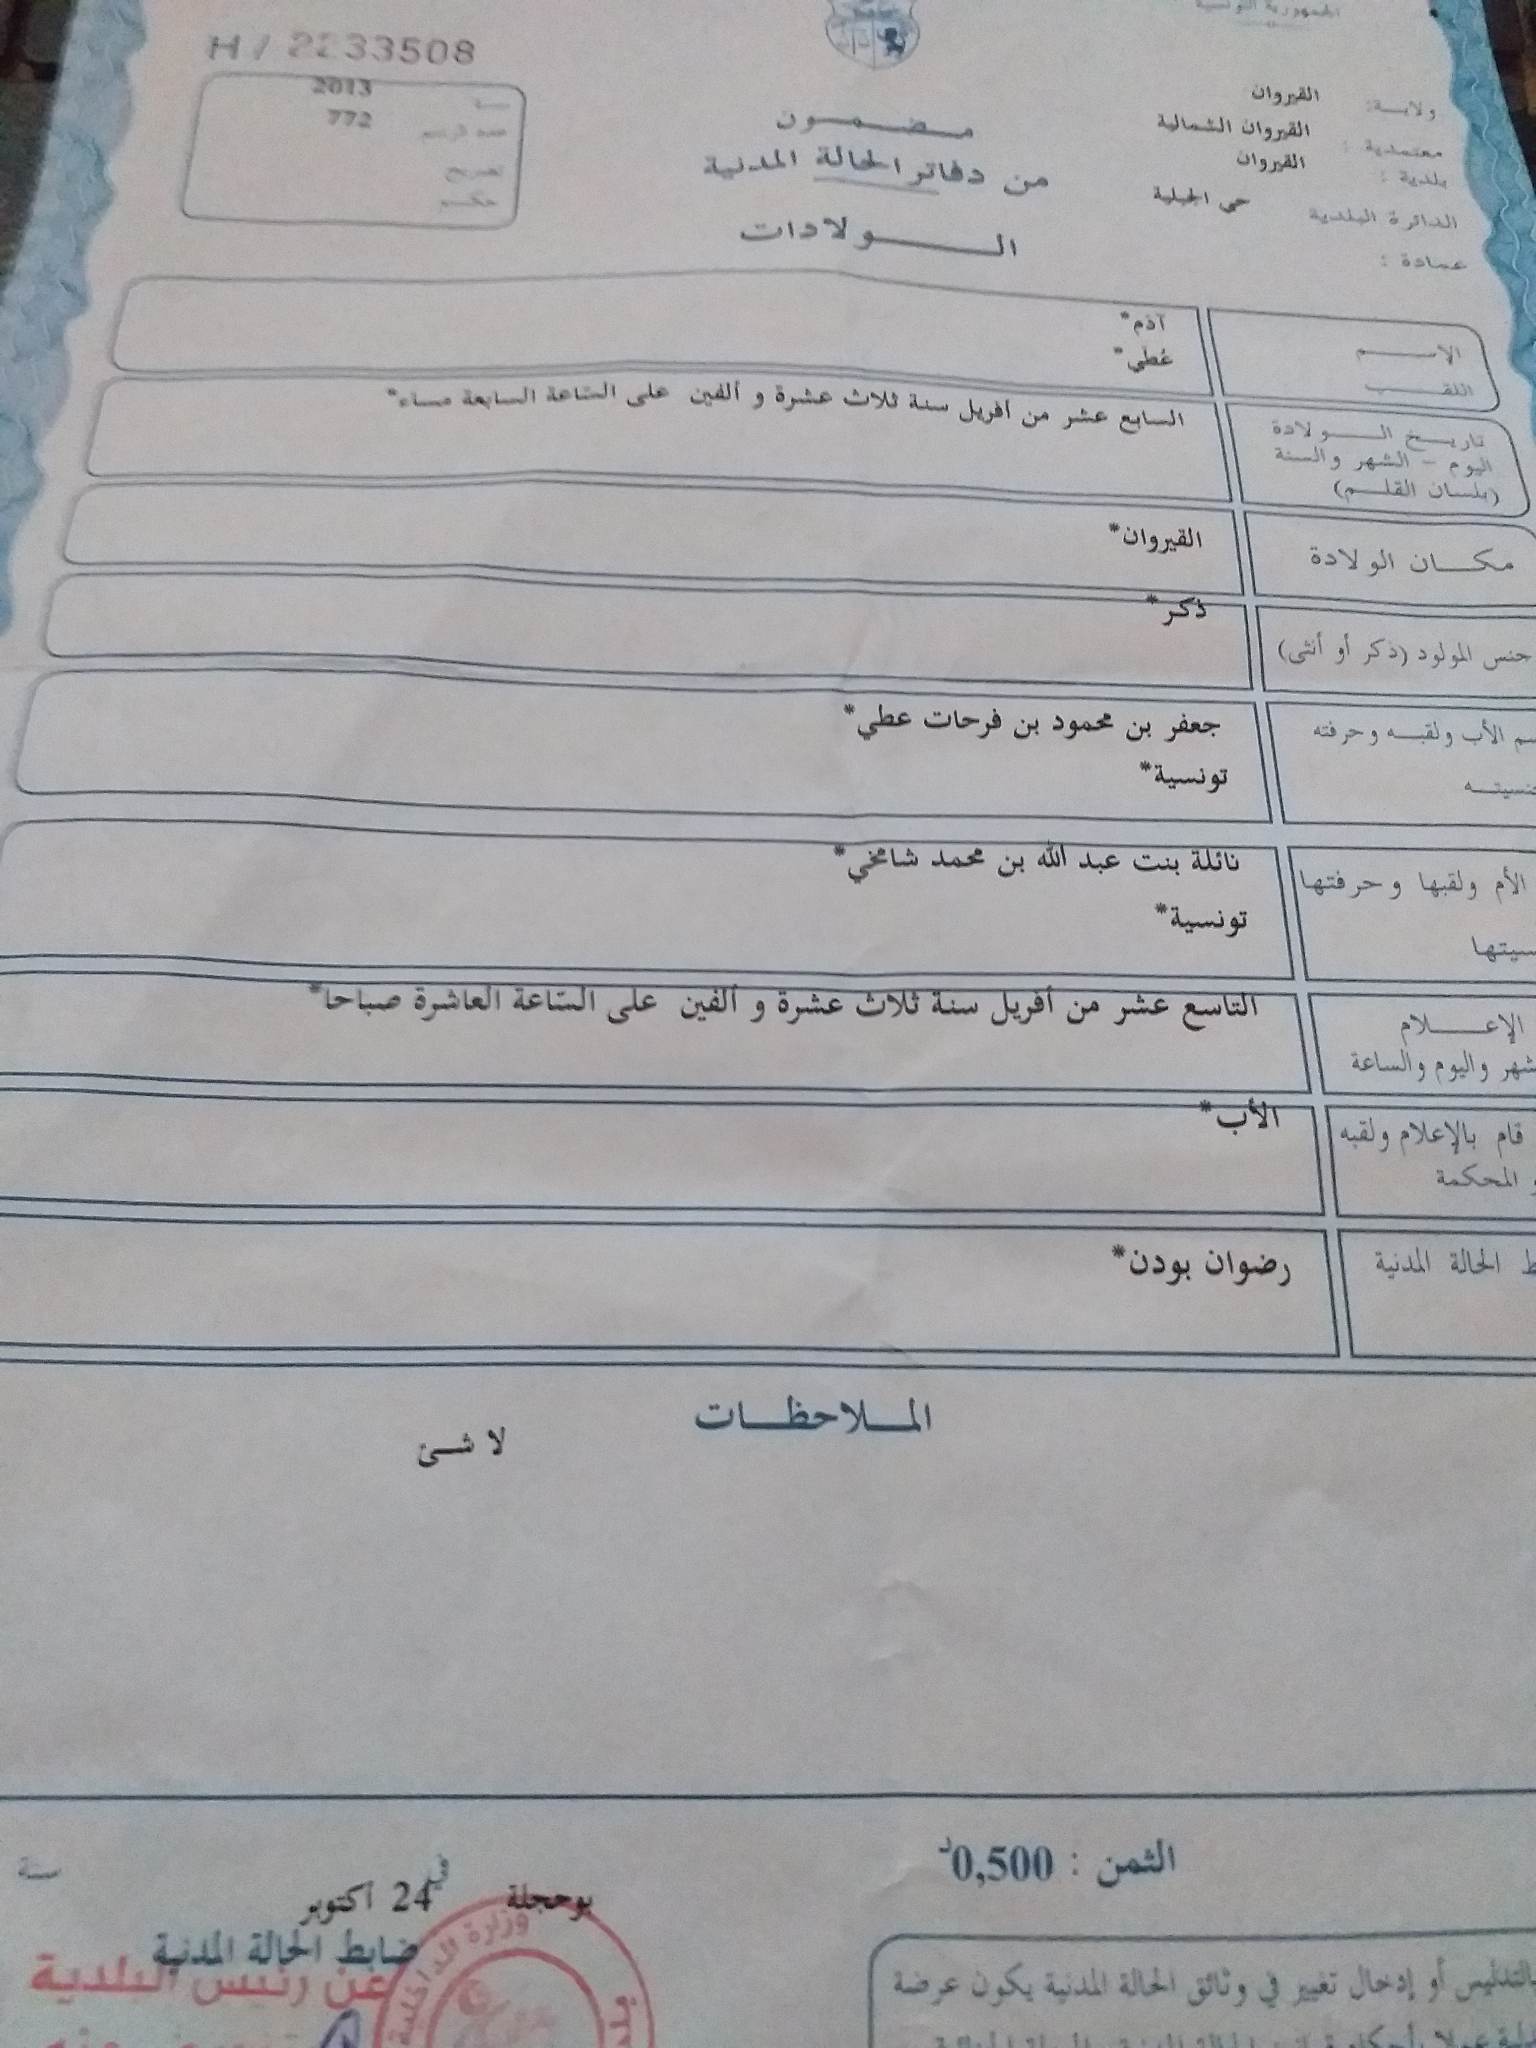 الجمهورية التونسية
H / 2233508
ولايــة: القيروان
معتمدية : القيروان الشمالية
بلدية : القيروان
الدائرة البلدية حي الجبلية
عمادة :
2013
عدد الرسم 772
تصريح
حكم
مضمون
من دفاتر الحالة المدنية
الــولادات
الاســم آدم*
اللقــب عُطي*
تاريــخ الــولادة
اليوم – الشهر والسنة
(بلسان القلــم)
السابع عشر من أفريل سنة ثلاث عشرة و ألفين على السّاعة السابعة مساء*
مكــان الولادة القيروان*
جنس المولود (ذكر أو أنثى) ذكر*
الأب ولقبــه وحرفته جعفر بن محمود بن فرحات عطي*
تونسية*
الأم ولقبها وحرفتها نائلة بنت عبد الله بن محمد شامخي*
تونسية*
الإعــلام
واليوم والساعة
التاسع عشر من أفريل سنة ثلاث عشرة و ألفين على السّاعة العاشرة صباحا*
قام بالإعلام ولقبه الأب*
المحكمة
الحالة المدنية رضوان بودن*
المــلاحظــات
لا شئ
الثمن : 0,500د
بوحجلة في 24 أكتوبر سنة
ضابط الحالة المدنية
عن رئيس البلدية
وزارة الداخلية
أو إدخال تغيير في وثائق الحالة المدنية يكون عرضة